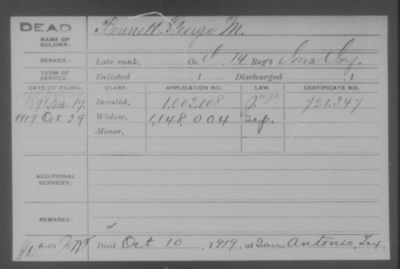 DEAD
NAME OF SOLDIER: George M.
SERVICE: Late rank, Co. I, 14 Reg't Iowa Inf.
TERM OF SERVICE: Enlisted , 1 Discharged , 1
DATE OF FILING. CLASS. APPLICATION NO. LAW. CERTIFICATE NO.
Invalid, 1,002,108 721,347
1919 Oct 29 Widow, 1,148,004
Minor,
ADDITIONAL SERVICES:
REMARKS:
Died Oct 10, 1919, at San Antonio, Tex.